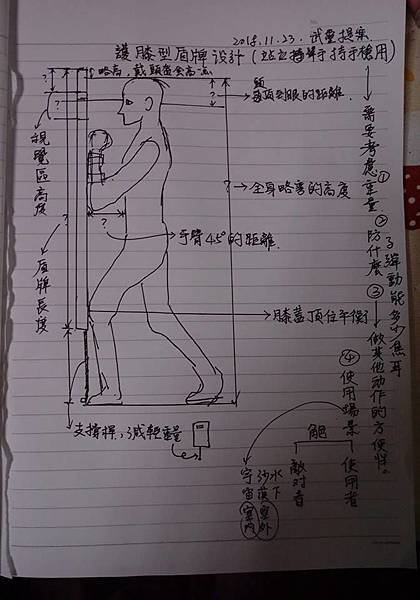 2018.11.23. 提案
護膝型盾牌设计(站立 持手槍用)
略高,戴頭盔会高一点
頭頂到眼的距離
?
視覺區高度
?
全身略弯的高度
?
手臂45°的距離
?
盾牌長度
膝蓋頂住平衡
支撐桿,減輕重量
需要考慮①重量②防什麼③做其他动作的方便性。
子彈動能多少焦耳
④使用場景
使用者
敵对者
水下
沙漠室外
宇宙室内